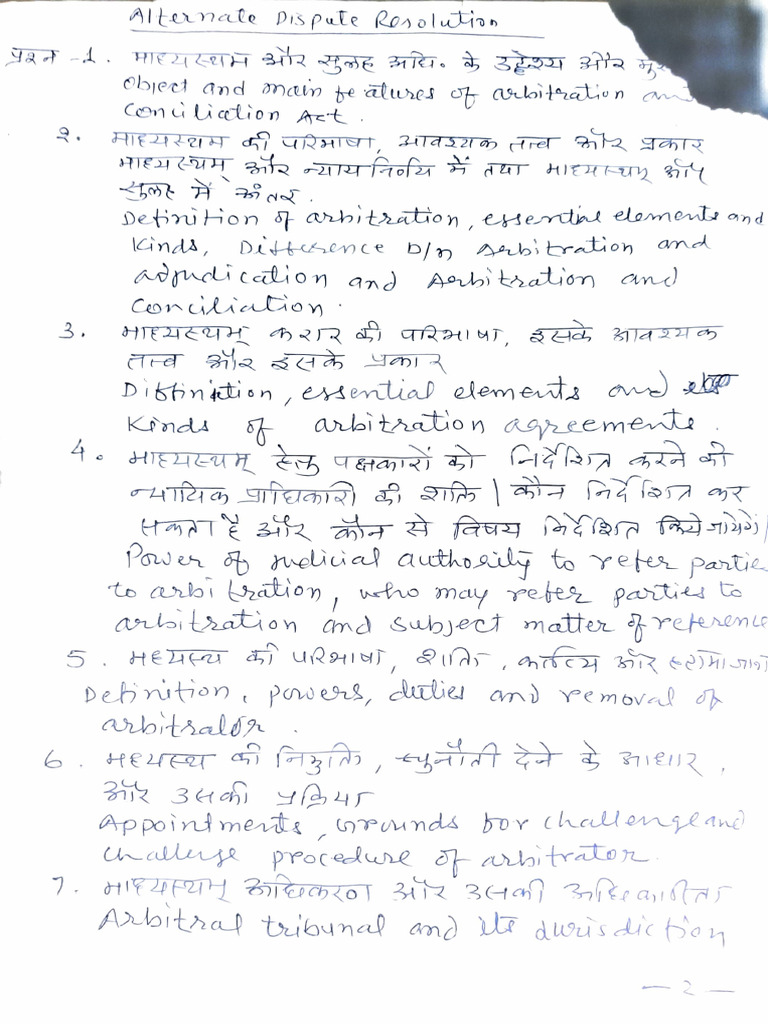 Alternate Dispute Resolution
प्रश्न -1. माध्यस्थम और सुलह अधि. के उद्देश्य और
object and main features of arbitration and
Conciliation Act.
2. माध्यस्थम की परिभाषा, आवश्यक तत्व और प्रकार
माध्यस्थम् और न्यायनिर्णय में तथा माध्यस्थम् और
सुलह में अंतर.
Definition of arbitration, essential elements and
Kinds, Difference b/n Arbitration and
adjudication and Arbitration and
Conciliation.
3. माध्यस्थम् करार की परिभाषा, इसके आवश्यक
तत्व और इसके प्रकार
Diffinition, essential elements and
Kinds of arbitration agreements.
4. माध्यस्थम् हेतु पक्षकारों को निर्देशित करने की
न्यायिक प्राधिकारी की शक्ति | कौन निर्देशित कर
सकता है और कौन से विषय निर्देशित किये जायेंगे|
Power of Judicial authority to refer partie
to arbitration, who may refer parties to
arbitration and subject matter of reference
5. मध्यस्थ की परिभाषा, शक्ति, कर्तव्य और हटाया जाना
Definition, powers, duties and removal of
arbitrator.
6. मध्यस्थ की नियुक्ति, चुनौती देने के आधार,
और उसकी प्रक्रिया
Appointments, grounds for challenge and
challenge procedure of arbitrator.
7. माध्यस्थम् अधिकरण और उसकी अधिकारिता
Arbitral tribunal and its Jurisdiction
— 2 —